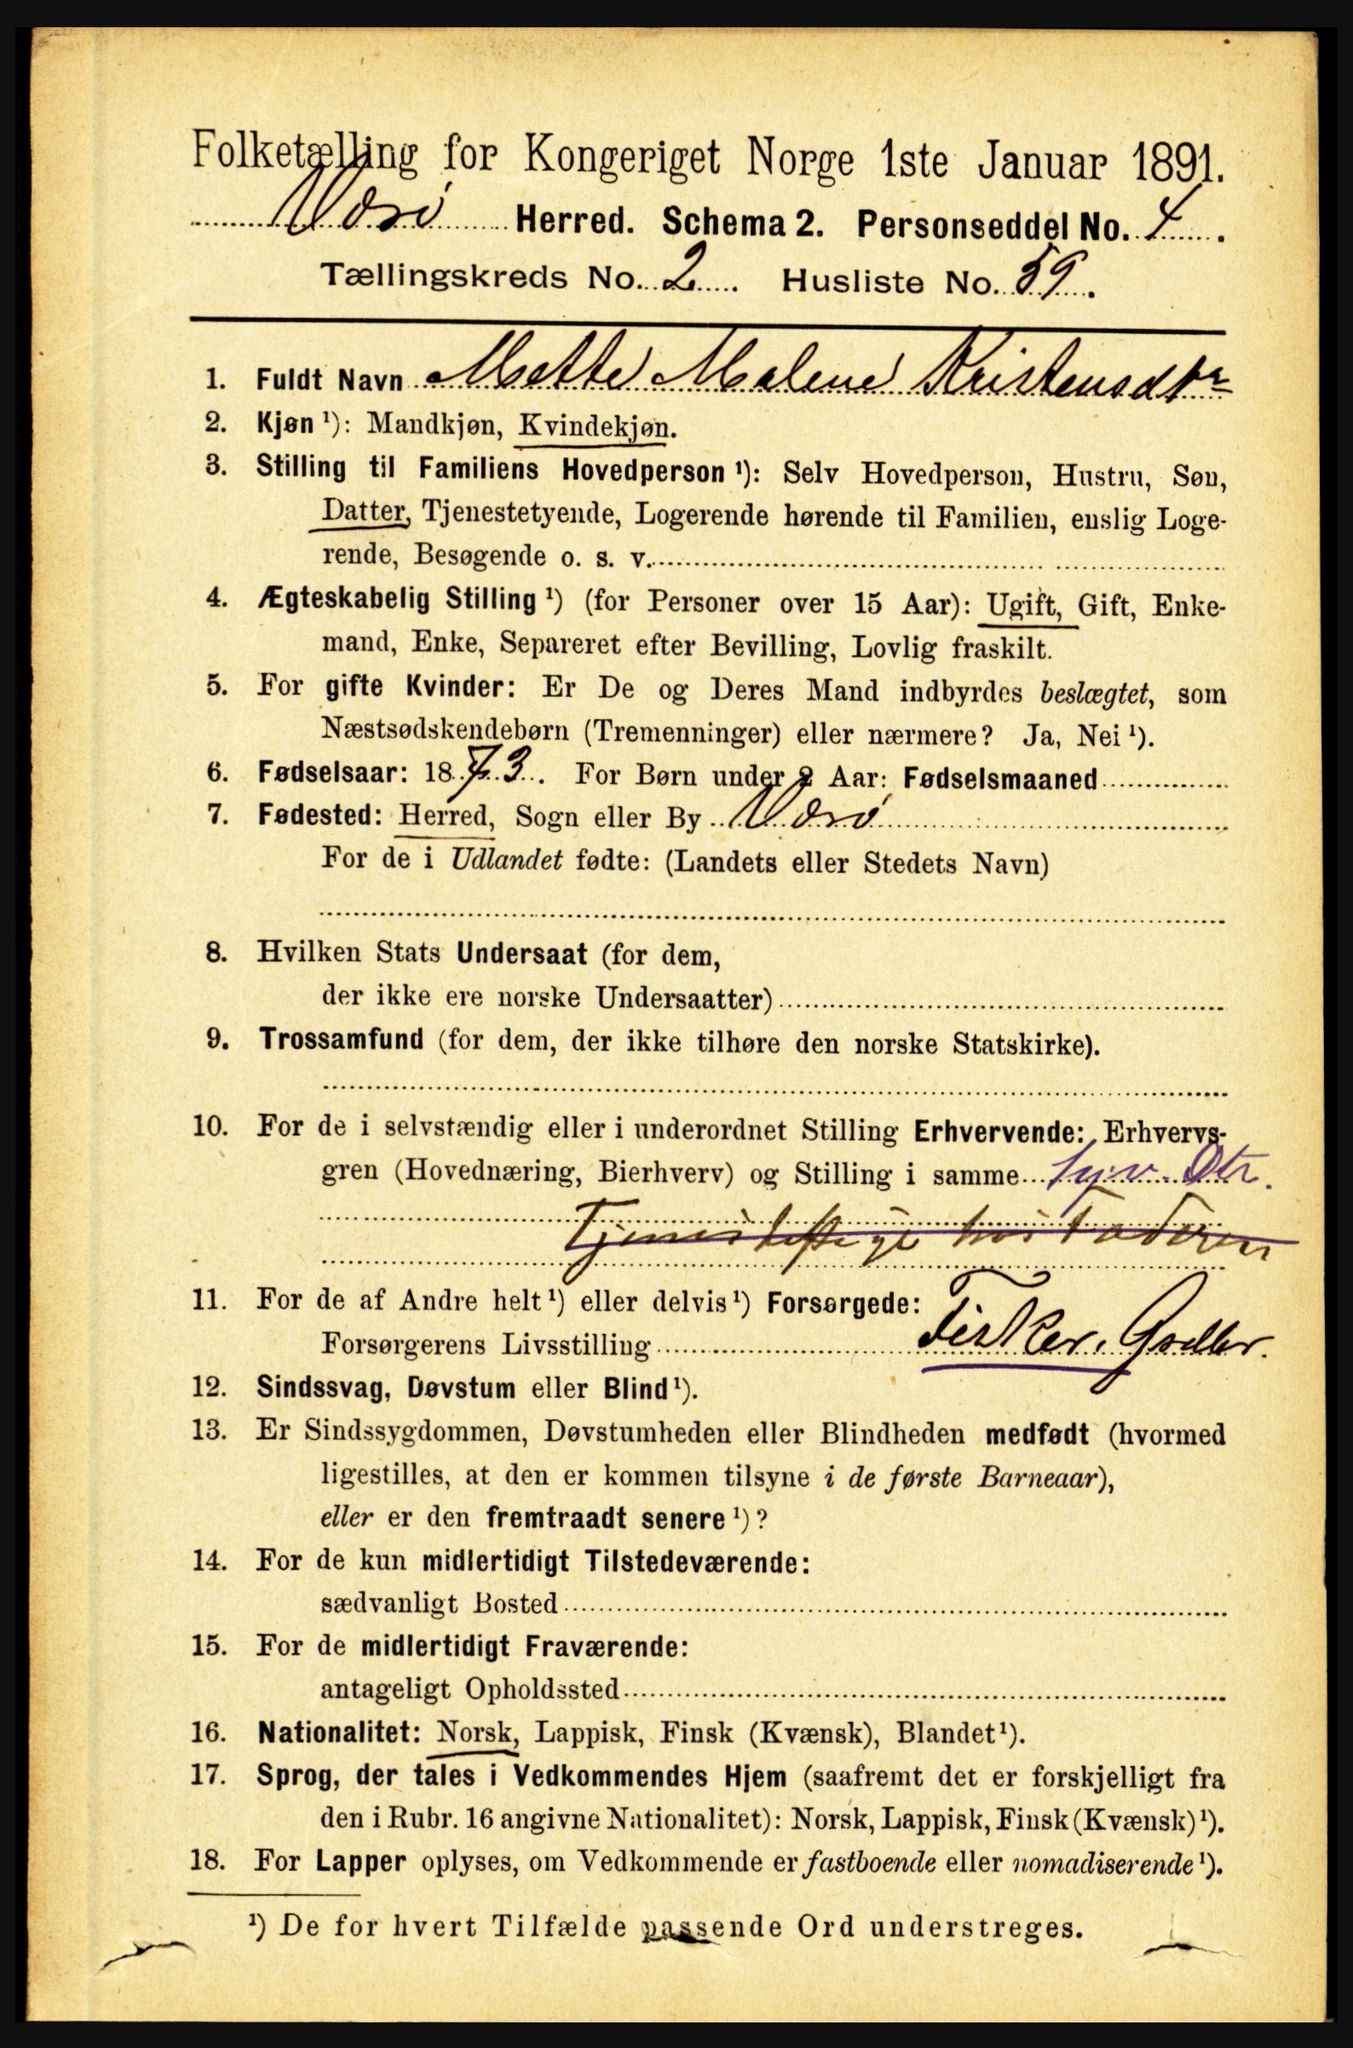 Folketælling for Kongeriget Norge 1ste Januar 1891.
Værø Herred. Schema 2. Personseddel No. 4.
Tællingskreds No. 2. Husliste No. 59.
1. Fuldt Navn Mette Malene Kristensdtr
2. Kjøn ¹): Mandkjøn, Kvindekjøn.
3. Stilling til Familiens Hovedperson ¹): Selv Hovedperson, Hustru, Søn,
Datter, Tjenestetyende, Logerende hørende til Familien, enslig Loge-
rende, Besøgende o. s. v.
4. Ægteskabelig Stilling ¹) (for Personer over 15 Aar): Ugift, Gift, Enke-
mand, Enke, Separeret efter Bevilling, Lovlig fraskilt.
5. For gifte Kvinder: Er De og Deres Mand indbyrdes beslægtet, som
Næstsødskendebørn (Tremenninger) eller nærmere? Ja, Nei ¹).
6. Fødselsaar: 1873. For Børn under 2 Aar: Fødselsmaaned
7. Fødested: Herred, Sogn eller By Værø
For de i Udlandet fødte: (Landets eller Stedets Navn)
8. Hvilken Stats Undersaat (for dem,
der ikke ere norske Undersaatter)
9. Trossamfund (for dem, der ikke tilhøre den norske Statskirke).
10. For de i selvstændig eller i underordnet Stilling Erhvervende: Erhvervs-
gren (Hovednæring, Bierhverv) og Stilling i samme Syv. Dtr.
Tjenestepige hos Faderen
11. For de af Andre helt ¹) eller delvis ¹) Forsørgede:
Forsørgerens Livsstilling Fisker, Gødbr.
12. Sindssvag, Døvstum eller Blind ¹).
13. Er Sindssygdommen, Døvstumheden eller Blindheden medfødt (hvormed
ligestilles, at den er kommen tilsyne i de første Barneaar),
eller er den fremtraadt senere ¹)?
14. For de kun midlertidigt Tilstedeværende:
sædvanligt Bosted
15. For de midlertidigt Fraværende:
antageligt Opholdssted
16. Nationalitet: Norsk, Lappisk, Finsk (Kvænsk), Blandet ¹).
17. Sprog, der tales i Vedkommendes Hjem (saafremt det er forskjelligt fra
den i Rubr. 16 angivne Nationalitet): Norsk, Lappisk, Finsk (Kvænsk) ¹).
18. For Lapper oplyses, om Vedkommende er fastboende eller nomadiserende ¹).
¹) De for hvert Tilfælde passende Ord understreges.